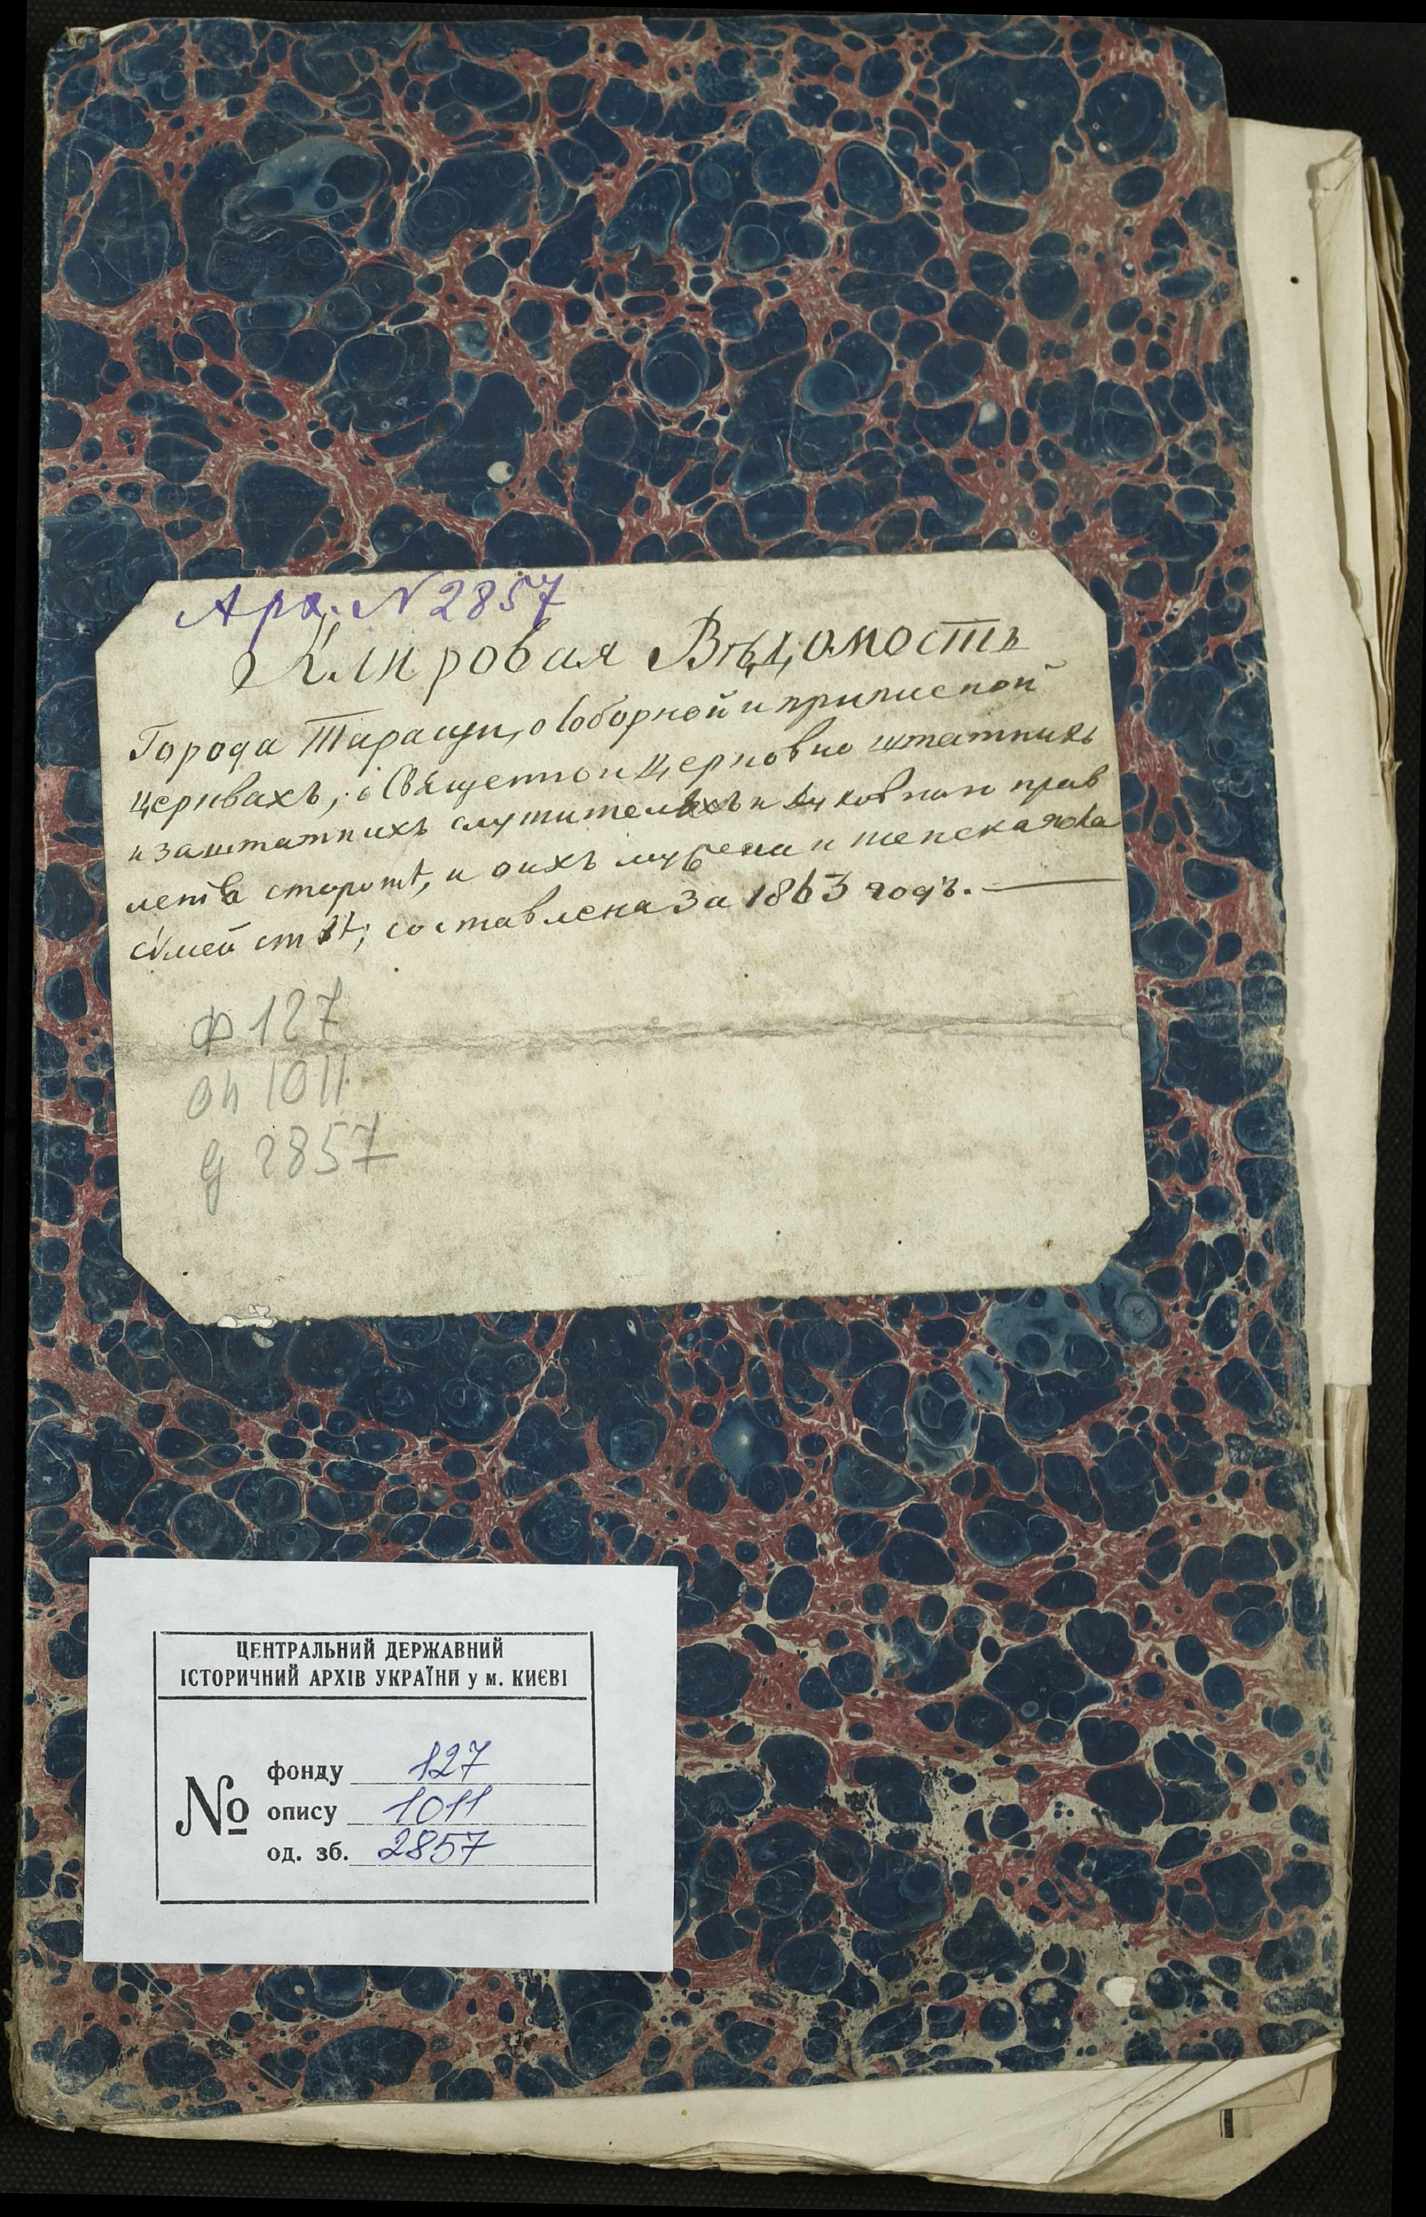 Арх. N 2857
Клировая Вѣдомость
Города Таращи, о Соборной и приписной
церквахъ, о Священно и церковно штатныхъ
и заштатныхъ служителяхъ и духовнаго прав
ленія сторожѣ, и о ихъ мужеска и женска пола
сѣмействѣ; составлена за 1863 годъ.
Ф 127
оп 1011
д 2857
ЦЕНТРАЛЬНИЙ ДЕРЖАВНИЙ
ІСТОРИЧНИЙ АРХІВ УКРАЇНИ у м. КИЄВІ
№ фонду 127
опису 1011
од. зб. 2857